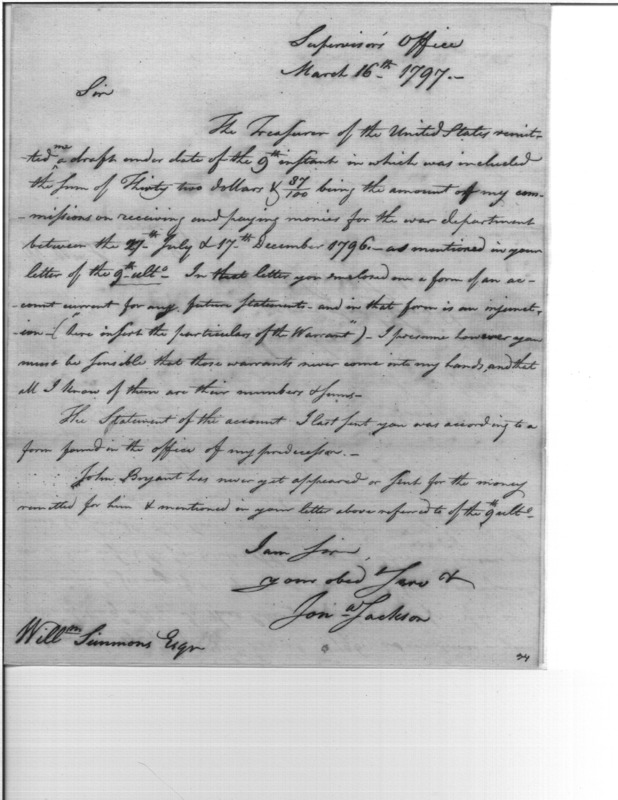 Supervisor's Office
March 16th 1797.-
Sir
The Treasurer of the United States remit-
ted me a draft under date of the 9th instant in which was included
the sum of Thirty two dollars & 37/100 being the amount of my com-
-missions on receiving and paying monies for the war department
between the 27th July & 17th December 1796.- as mentioned in your
letter of the 9th ulto- In that letter you enclosed me a form of an ac-
-count current for any future statements- and in that form is an injunct-
-ion- ("here insert the particulars of the Warrant")- I presume however you
must be sensible that those warrants never come into my hands, and that
all I know of them are their numbers & sums-
The Statement of the account I last sent you was according to a
form found in the office of my predecessor.-
John Bryant has never yet appeared or sent for the money
remitted for him & mentioned in your letter above referred to of the 9th ulto-
I am Sir,
your obedt Servt
Jona Jackson
Willm Simmons Esqr
24